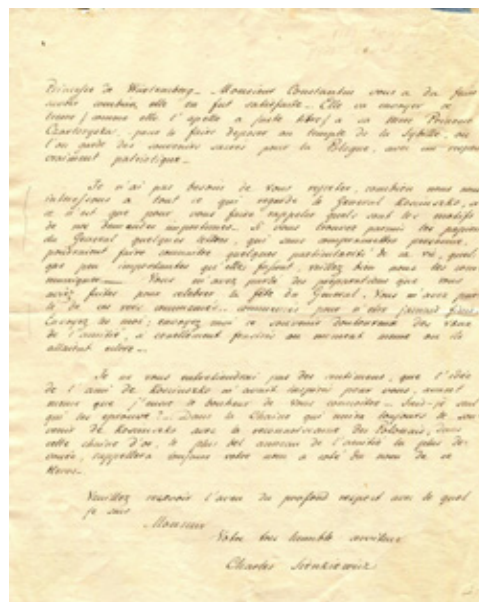 Princesse de Würtemberg_ Monsieur Constantin vous a du faire
savoir combien elle en fut satisfaite_ Elle va envoyer ce
comme elle l'apelle a juste titre/ a sa mere Princesse
Czartoryska, pour le faire deposer au temple de la Sybille, ou
l'on garde des souvenirs sacrés pour la Pologne, avec un respect
vraiment patriotique_
Je n'ai pas besoin de vous repeter, combien nous nous
interessons a tout ce qui regarde le General Kosciuszko,
ce n'est que pour vous faire rappeler quels sont les motifs
de nos demandes importunes. Si vous trouvez parmis les papiers
du General quelques lettres, qui sans compromettre personne,
pourraient faire connaitre quelques particularités de sa vie, quel-
que peu importantes qu'elles fussent, veillez bien nous les com-
muniquer_ Vous m'avez parlé des préparations que vous
aviez faites pour celebrer la fête du General. Vous m'avez par-
lé de ces vers commencés_ commencés pour n'être jamais finis
Envoyez les moi; envoyez moi ce souvenir douloureux des vœux
de l'amitié, si cruellement au moment meme ou ils
allaient_
Je ne vous entretiendrai pas des sentimens, que l'idée
de l'ami de Kosciuszko m'avait inspirés pour vous, avant
meme que j'eusse le bonheur de vous connaitre_ Suis-je seul
qui les eprouve?_ Dans la Chaine qui unira toujours le sou-
venir de Kosciuszko avec la reconnaissance des Polonais, dans
cette chaine d'or, le plus bel anneau de l'amitié la plus de-
vouée, rappellera toujours votre nom a coté du nom de ce
Heros_
Veuillez recevoir l'aveu du profond respect avec le quel
je suis
Monsieur
Votre tres humble serviteur
Charles Sienkiewicz